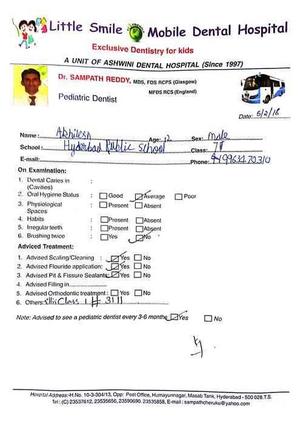 Little Smile Mobile Dental Hospital
Exclusive Dentistry for kids
A UNIT OF ASHWINI DENTAL HOSPITAL (Since 1997)
Dr. SAMPATH REDDY, MDS, FDS RCPS (Glasgow)
MFDS RCPS (England)
Pediatric Dentist
Date: 5/2/16
Name: Akhilesh Age: 12 Sex: male
School: Hyderbad Public School Class: 7
E-mail: Phone:
On Examination:
1. Dental Caries in :
(Cavities)
2. Oral Hygiene Status : Good Average Poor
3. Physiological : Present Absent
Spaces
4. Habits : Present Absent
5. Irregular teeth : Present Absent
6. Brushing twice : Yes No
Adviced Treatment:
1. Advised Scaling/Cleaning : Yes No
2. Advised Flouride application: Yes No
3. Advised Pit & Fissure Sealants Yes No
4. Advised Filling in
5. Advised Orthodontic treatment : Yes No
6. Others: Class I # 3111
Note: Advised to see a pediatric dentist every 3-6 months Yes No
Hospital Address:-H.No. 10-3-304/13, Opp: Post Office, Humayunnagar, Masab Tank, Hyderabad - 500 028.T.S.
Tel: (C) 23537612, 23535656, 23590690, 23535858, E-mail: sampathcheruku@yahoo.com